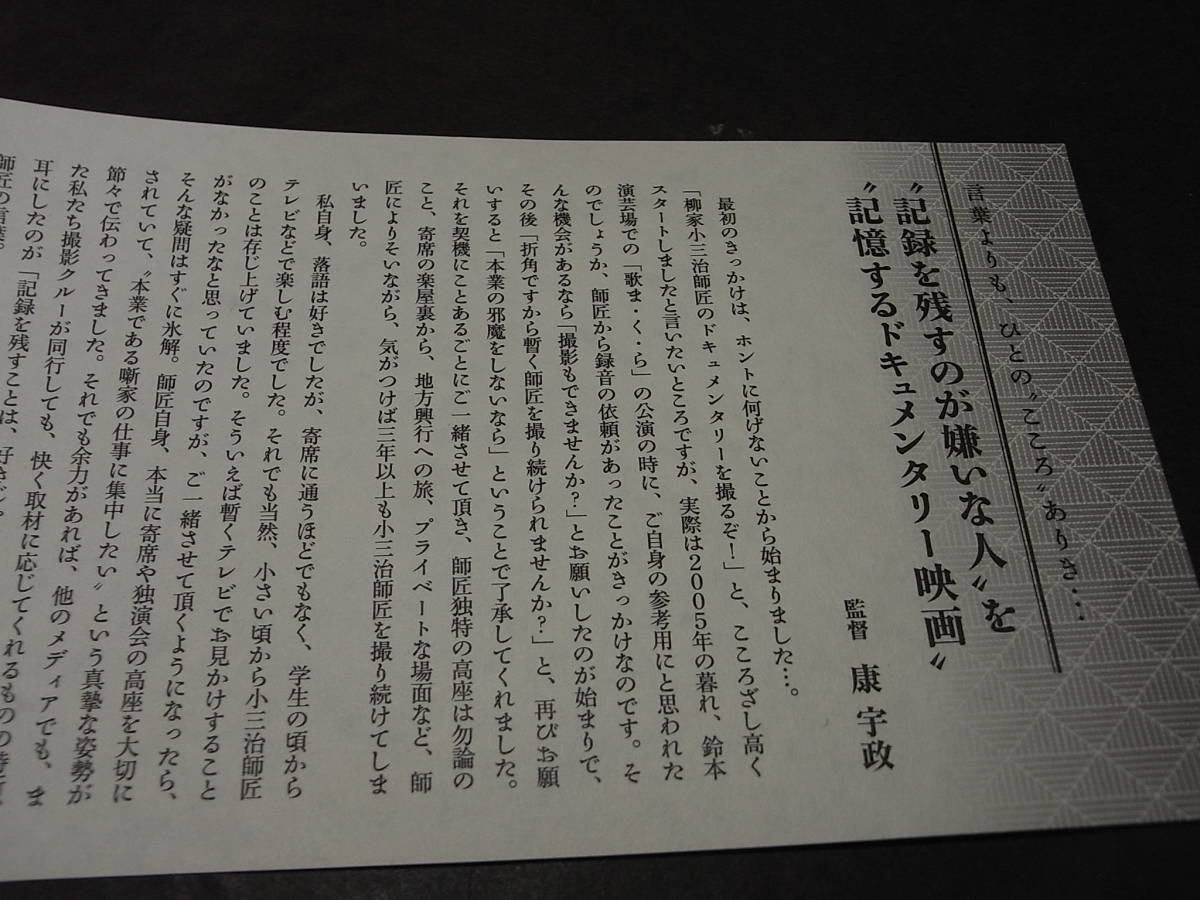 言葉よりも、ひとの〝こころ〟ありき…
〝記録を残すのが嫌いな人〟を
〝記憶するドキュメンタリー映画〟
監督 康 宇政
最初のきっかけは、ホントに何げないことから始まりました…。
「柳家小三治師匠のドキュメンタリーを撮るぞ！」と、こころざし高く
スタートしましたと言いたいところですが、実際は2005年の暮れ、鈴本
演芸場での「歌ま・く・ら」の公演の時に、ご自身の参考用にと思われた
のでしょうか、師匠から録音の依頼があったことがきっかけなのです。そ
んな機会があるなら「撮影もできませんか？」とお願いしたのが始まりで、
その後「折角ですから暫く師匠を撮り続けられませんか？」と、再びお願
いすると「本業の邪魔をしないなら」ということで了承してくれました。
それを契機にことあるごとにご一緒させて頂き、師匠独特の高座は勿論の
こと、寄席の楽屋裏から、地方興行への旅、プライベートな場面など、師
匠によりそいながら、気がつけば三年以上も小三治師匠を撮り続けてしま
いました。
私自身、落語は好きでしたが、寄席に通うほどでもなく、学生の頃から
テレビなどで楽しむ程度でした。それでも当然、小さい頃から小三治師匠
のことは存じ上げていました。そういえば暫くテレビでお見かけすること
がなかったなと思っていたのですが、ご一緒させて頂くようになったら、
そんな疑問はすぐに氷解。師匠自身、本当に寄席や独演会の高座を大切に
されていて、〝本業である噺家の仕事に集中したい〟という真摯な姿勢が
節々で伝わってきました。それでも余力があれば、他のメディアでも、ま
た私たち撮影クルーが同行しても、快く取材に応じてくれるものの
耳にしたのが「記録を残すことは、好きじゃ
師匠の言葉。